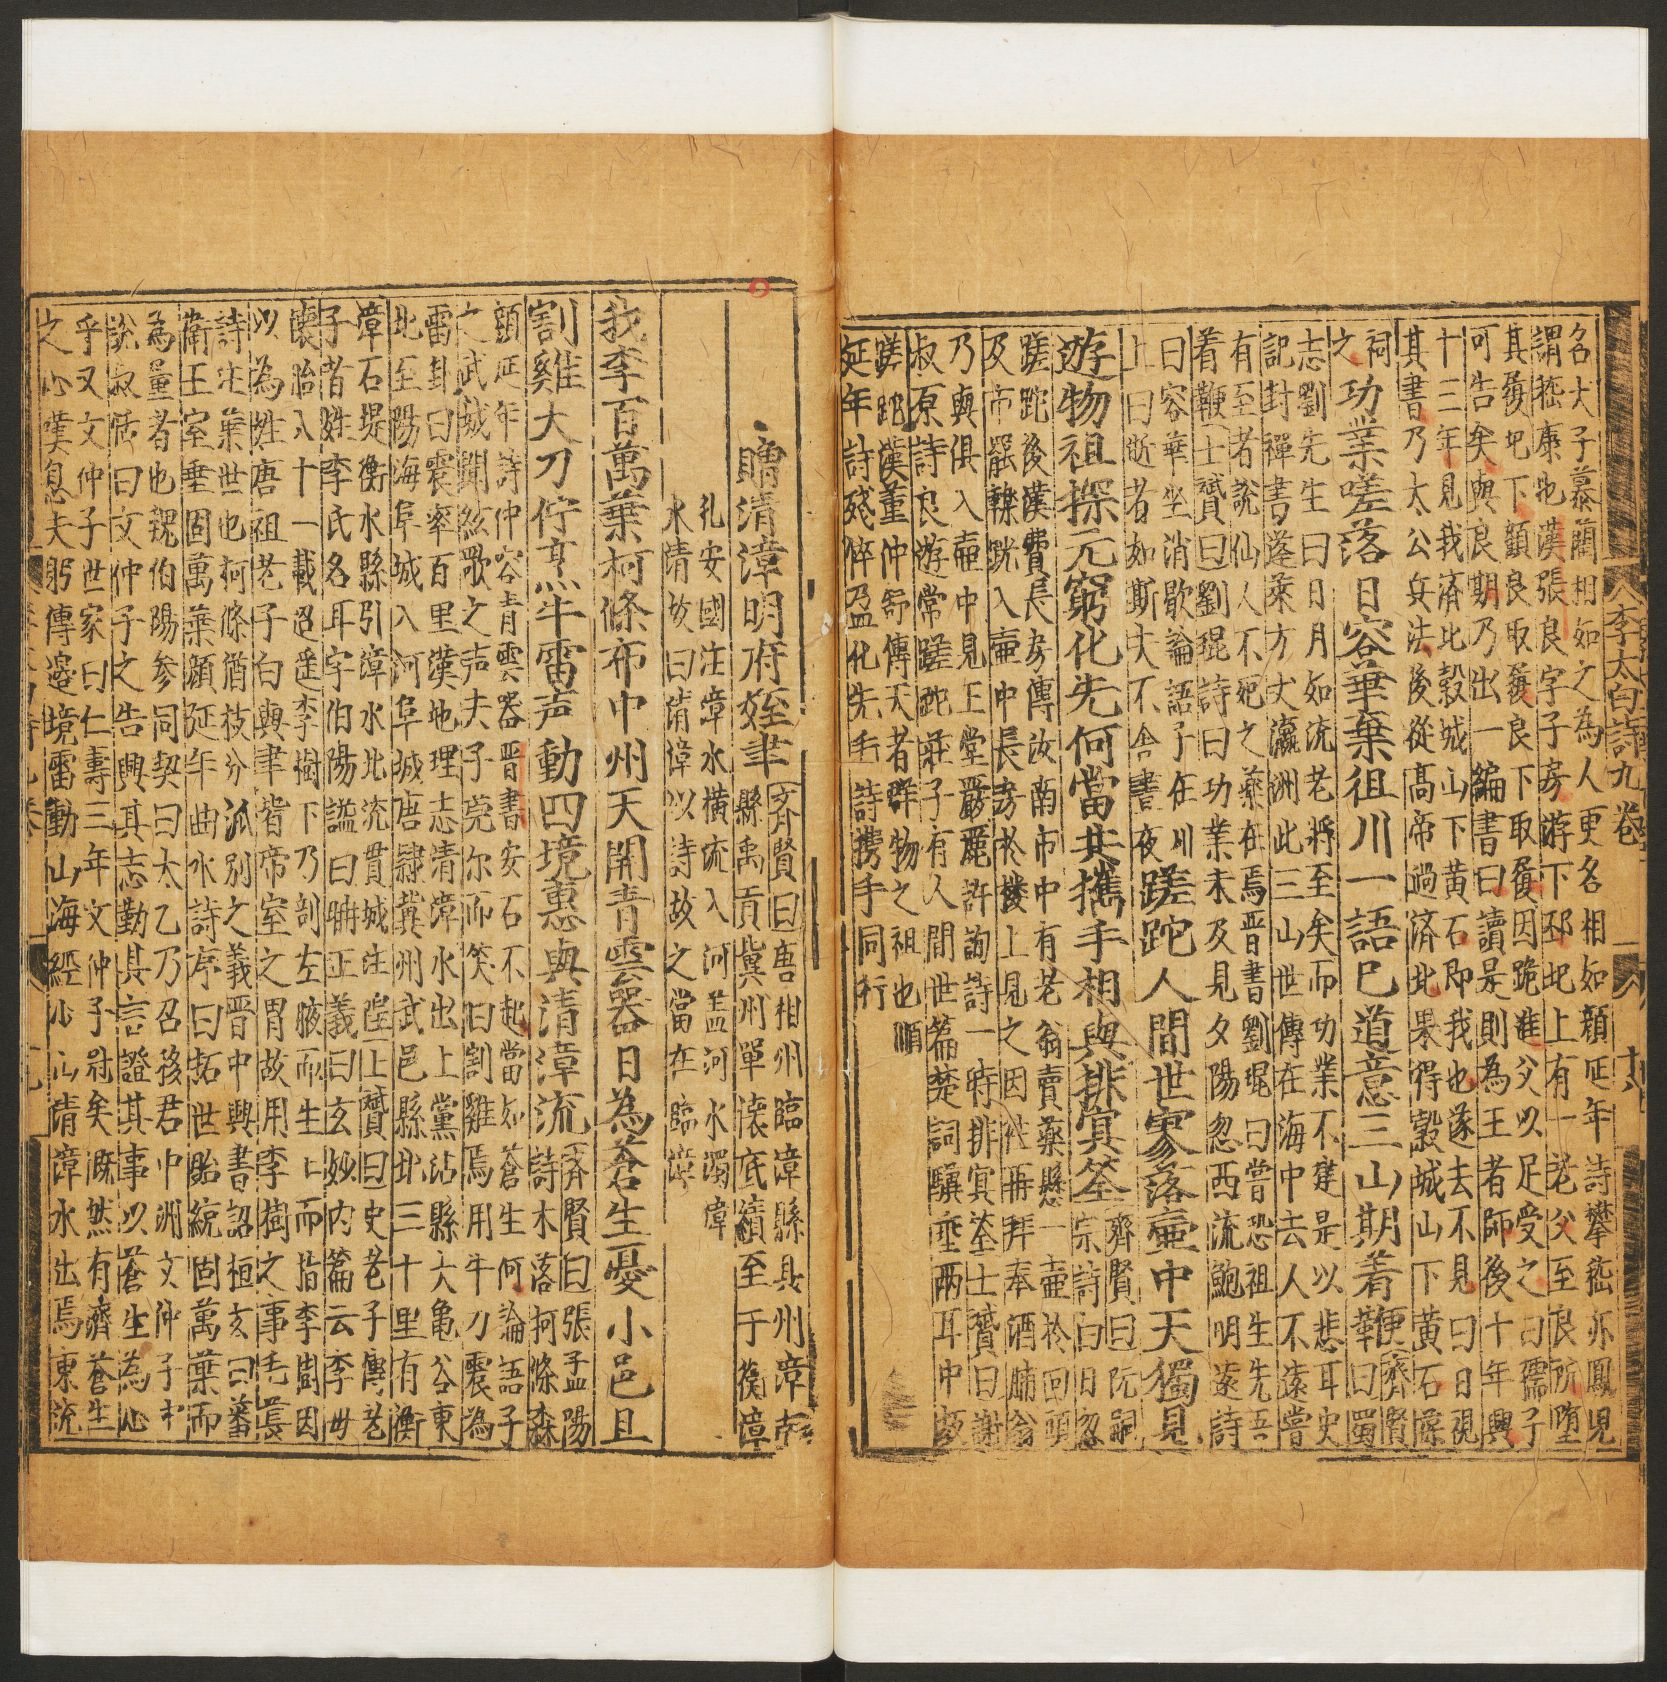 李太白詩九卷 十八
名犬子慕藺相如之為人更名相如顔延年詩攀嵇亦鳳見
謂嵇康也漢張良字子房游下邳圯上有一老父至良所堕
其履圯下顧良取履良下取履因跪進父以足受之曰孺子
可告矣與良期乃出一編書曰讀是則為王者師後十年興
十三年見我濟北穀城山下黄石即我也遂去不見旦日視
其書乃太公兵法後從髙帝過濟北果得穀城山下黄石葆
祠之
功業嗟落日容華棄徂川一語已道意三山期着鞭
齊賢曰蜀
志劉先生曰日月如流老將至矣而功業不建是以悲耳史
記封禪書蓬萊方丈瀛洲此三山世傳在海中去人不遠嘗
有至者說仙人不死之藥在焉晋書劉琨曰嘗恐祖生先吾
着鞭士贇曰劉琨詩曰功業未及見夕陽忽西流鮑明遠詩
曰容華坐消歇論語子在川
上曰逝者如斯夫不舍晝夜
蹉跎人間世寥落壷中天獨見
遊物祖探元窮化先何當共攜手相與排冥筌
齊賢曰阮嗣
宗詩白日忽
蹉跎後漢費長房傳汝南市中有老翁賣藥懸一壷於
及市罷輙跳入壷中長房於楼上見之因徃再拜奉酒脯翁
乃與俱入壷中見玉堂嚴麗許詢詩一時排冥筌士贇曰謝
叔原詩良遊常蹉跎莊子有人間世篇楚詞驥垂兩耳中坂
蹉跎漢董仲舒傳天者群物之祖也順
延年詩殘悴盈化先手詩攜手同行
贈清漳明府姪聿
齊賢曰唐相州臨漳縣具州漳南
縣禹貢冀州單懷底績至于衡漳
孔安國注漳水橫流入河盖河水濁漳
水清故曰清漳以詩故之當在臨漳
我李百萬葉柯條布中州天開青雲器日為蒼生憂小邑且
割雞大刀佇烹牛雷声動四境惠與清漳流
齊賢曰張孟陽
詩木落柯條森
顔延年詩仲容青雲器晋書安石不起當如蒼生何論語子
之武城聞絃歌之声夫子莞尔而笑曰割雞焉用牛刀震為
雷卦曰震驚百里漢地理志清漳水出上黨沾縣大黽谷東
北至陽海阜城入河阜城唐隸冀州武邑縣北三十里有衡
漳石堤衡水縣引漳水北流貫城注隍士贇曰史老子傳老
子者姓李氏名耳字伯陽謚曰聃正義曰玄妙内篇云李母
懷胎八十一載逍遥李樹下乃剖左腋而生上而指李樹因
以為姓唐祖老子白與聿皆帝室之胃故用李樹之事毛萇
詩注葉世也柯條猶枝分派別之義晋中興書詔桓玄曰蕃
衛王室垂固萬葉顔延年曲水詩序曰拓世貽統固萬葉而
為量者也魏伯陽参同契曰太乙乃召移君中洲文仲子朩
說叔恬曰文仲子之告興其志勤其言證其事以蒼生為心
乎又文仲子世家曰仁壽三年文仲子冠矣慨然有濟蒼生
之心漢息夫躬傳邊境雷動山海經少山清漳水出焉東流